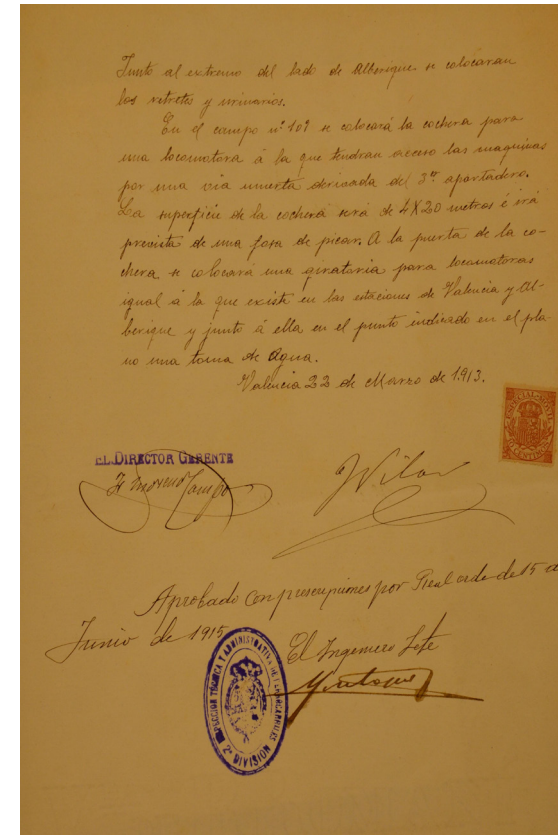 Junto al extremo del lado de Alberique se colocaran
los retretes y urinarios.
En el campo nº 101 se colocará la cochera para
una locomotora á la que tendran acceso las maquinas
por una via muerta derivada del 3er apartadero.
La superficie de la cochera será de 4X20 metros é irá
prevista de una fosa de picar. A la puerta de la co-
chera se colocará una giratoria para locomotoras
igual á la que existe en las estaciones de Valencia y Al-
berique y junto á ella en el punto indicado en el pla-
no una toma de Agua.
Valencia 22 de Marzo de 1.913.
ESPECIAL MOVIL
10 CENTIMOS
EL DIRECTOR GERENTE
Aprobado con prescripciones por Real orden de 15 d
Junio de 1915
El Ingeniero Jefe
INSPECCION TÉCNICA Y ADMINISTRATIVA DE FERROCARRILES
2ª DIVISION